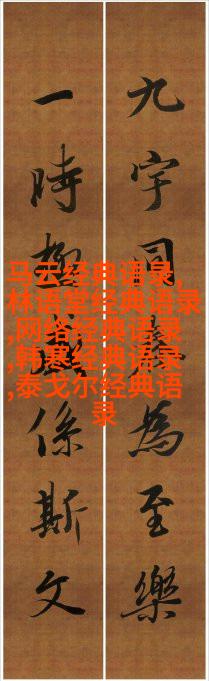 九宇同為至樂
一時極係斯文
马云经典语录
林语堂经典语录
,网络经典语录
,韩寒经典语录
,泰戈尔经典语
录